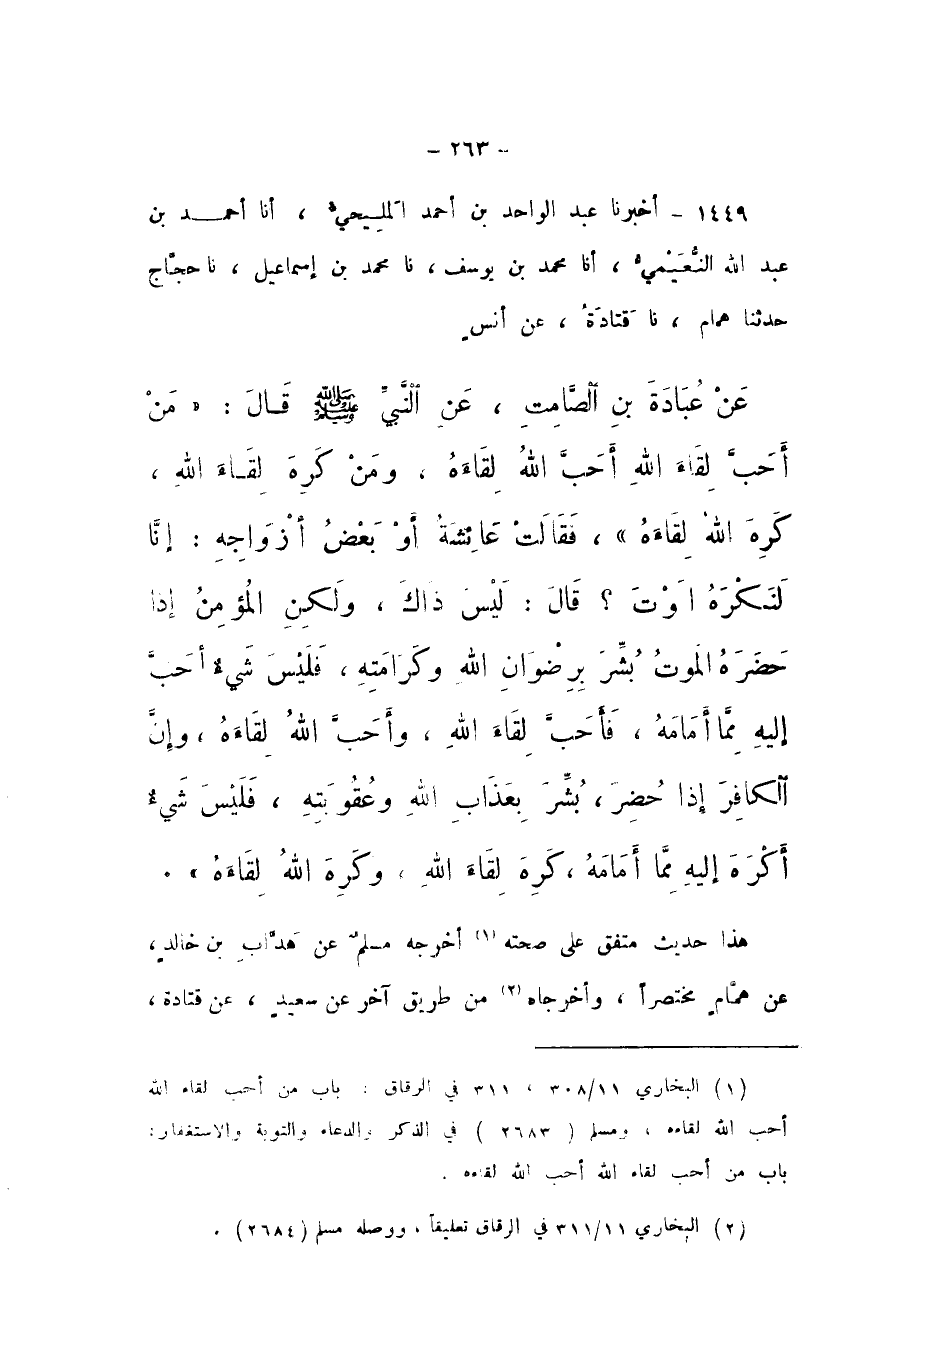 - ٢٦٣ -
١٤٤٩ - أخبرنا عبد الواحد بن أحمد المليحيُّ ، أنا أحمـــد بن
عبد الله النُّعَيْميُّ ، أنا محمد بن يوسف ، نا محمد بن إسماعيل ، نا حجَّاج
حدثنا همام ، نا قتادَةُ ، عن أنسٍ
عَنْ عُبَادَةَ بنِ ٱلصَّامِتِ ، عَنِ ٱلنَّبِيِّ ﷺ قَـالَ : « مَنْ
أَحَبَّ لِقَاءَ اللهِ أَحَبَّ اللهُ لِقَاءَهُ ، ومَنْ كَرِهَ لِقَـاءَ اللهِ ،
كَرِهَ اللهُ لِقَاءَهُ » ، فَقَالَتْ عَائِشَةُ أَوْ بَعْضُ أَزْوَاجِهِ : إنَّا
لَنَكْرَهُ الموْتَ ؟ قَالَ : لَيْسَ ذَاكَ ، ولَكِنِ المُؤمِنُ إذا
حَضَرَهُ المَوتُ بُشِّرَ بِرِضْوَانِ اللهِ وكَرَامَتِهِ ، فَلَيْسَ شَيءٌ أحَبَّ
إليهِ مِمَّا أَمَامَهُ ، فَأَحَبَّ لِقَاءَ اللهِ ، وأَحَبَّ اللهُ لِقَاءَهُ ، وإنَّ
ٱلكافِرَ إذا حُضِرَ ، بُشِّرَ بِعَذَابِ اللهِ وعُقُوبَتِهِ ، فَلَيْسَ شَيءٌ
أَكْرَهَ إليهِ مِمَّا أَمَامَهُ ، كَرِهَ لِقَاءَ اللهِ ، وكَرِهَ اللهُ لِقَاءَهُ » .
هذا حديث متفق على صحته (١) أخرجه مسلمٌ عن هَدَّابِ بن خالدٍ ،
عن همَّامٍ مختصراً ، وأخرجاه (٢) من طريق آخر عن سعيدٍ ، عن قتادة ،
(١) البخاري ٣٠٨/١١ ، ٣١١ في الرقاق : باب من أحب لقاء الله
أحب الله لقاءه ، ومسلم ( ٢٦٨٣ ) في الذكر والدعاء والتوبة والاستغفار :
باب من أحب لقاء الله أحب الله لقاءه .
(٢) البخاري ٣١١/١١ في الرقاق تعليقاً ، ووصله مسلم ( ٢٦٨٤ ) .